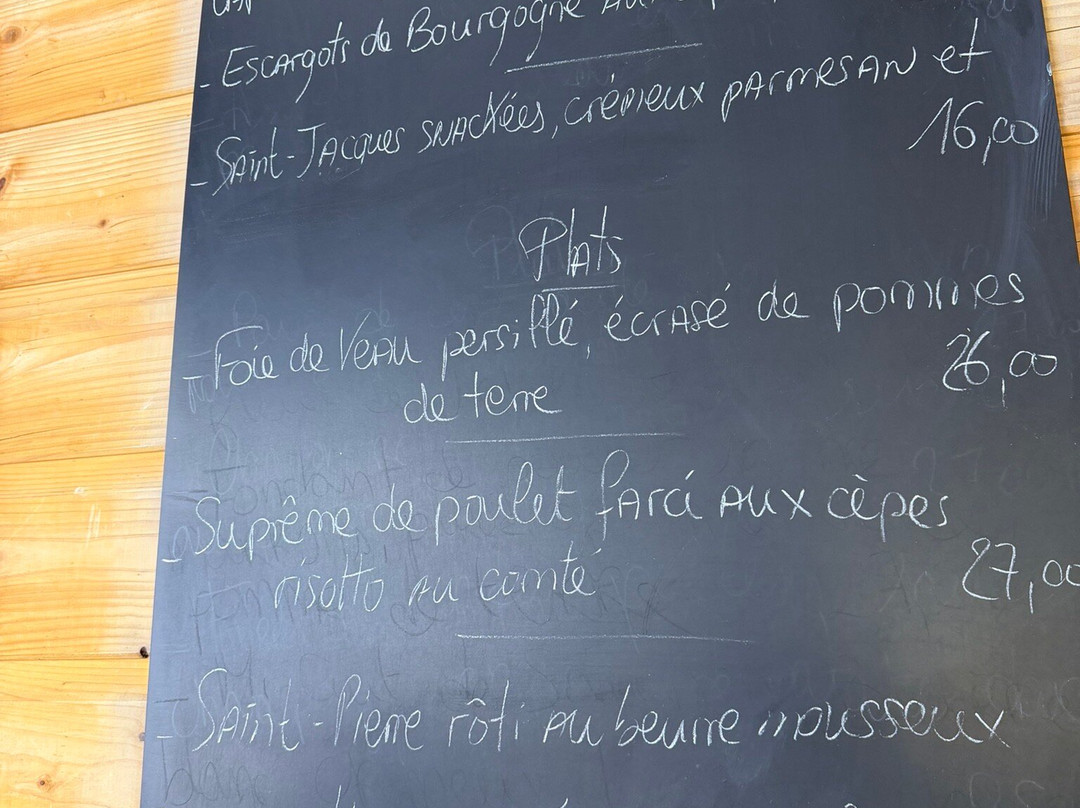 - Escargots de Bourgogne
- Saint-Jacques snackées, crémeux parmesan et
16,00
Plats
- Foie de Veau persillé, écrasé de pommes
de terre
26,00
- Suprême de poulet farci aux cèpes
risotto au comté
27,00
- Saint-Pierre rôti au beurre mousseux